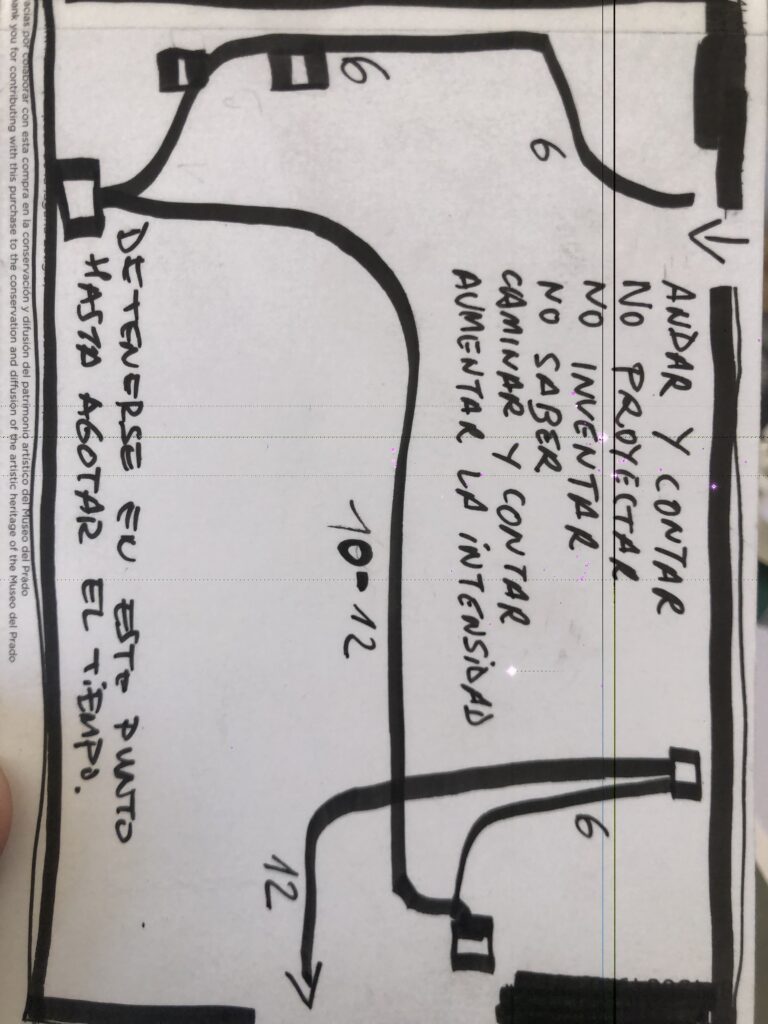 6
6
ANDAR Y CONTAR
NO PROYECTAR
NO INVENTAR
NO SABER
CAMINAR Y CONTAR
AUMENTAR LA INTENSIDAD
10-12
6
12
DETENERSE EN ESTE PUNTO
HASTA AGOTAR EL TIEMPO.
acias por colaborar con esta compra en la conservación y difusión del patrimonio artístico del Museo del Prado
ank you for contributing with this purchase to the conservation and diffusion of the artistic heritage of the Museo del Prado